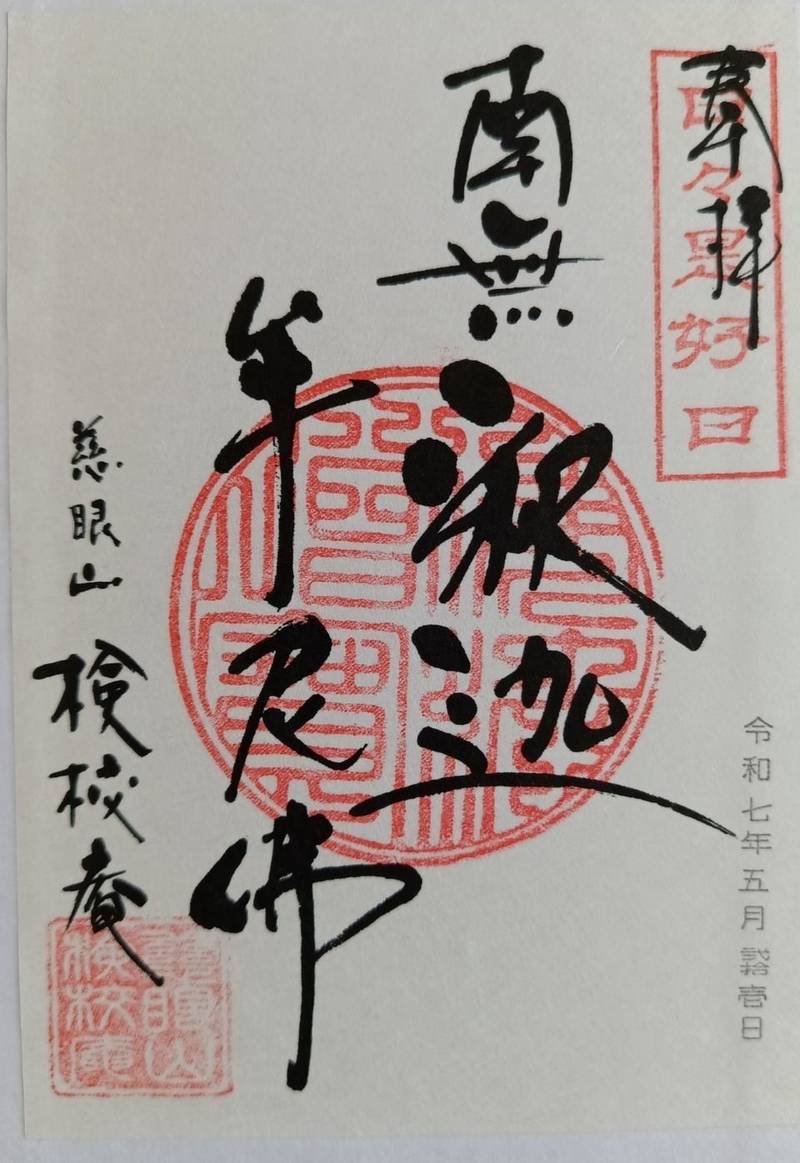 奉拝
日々是好日
令和七年五月弐拾壱日
南無釈迦
牟尼佛
慈眼山 検校庵
慈眼山
検校庵